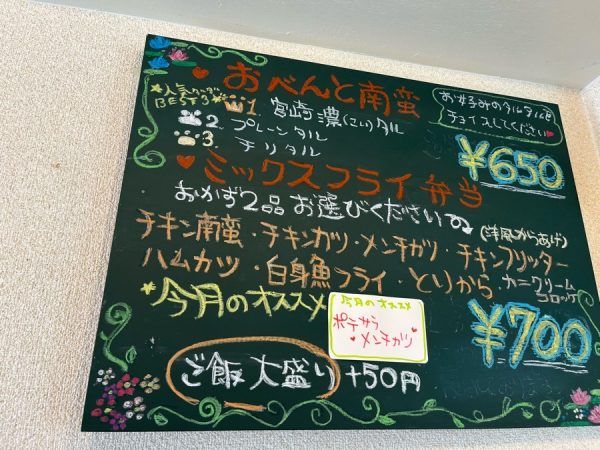 おべんと南蛮
お好みのタルタルを
チョイスしてください
★人気タルタル
BEST3
1. 宮崎濃(こい)タル
2. プレーンタル
3. チリタル
¥650
ミックスフライ弁当
おかず2品お選びください
チキン南蛮・チキンカツ・メンチカツ・チキンフリッター
(洋風からあげ)
ハムカツ・白身魚フライ・とりから・カニクリーム
コロッケ
★今月のオススメ
今月のオススメ
ポテサラ
・メンチカツ
¥700
ご飯大盛り+50円